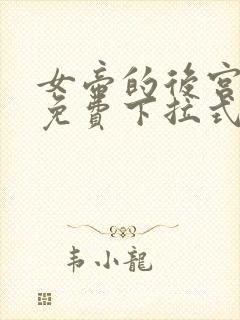 女帝的後宮
免費下拉式
韦小龍